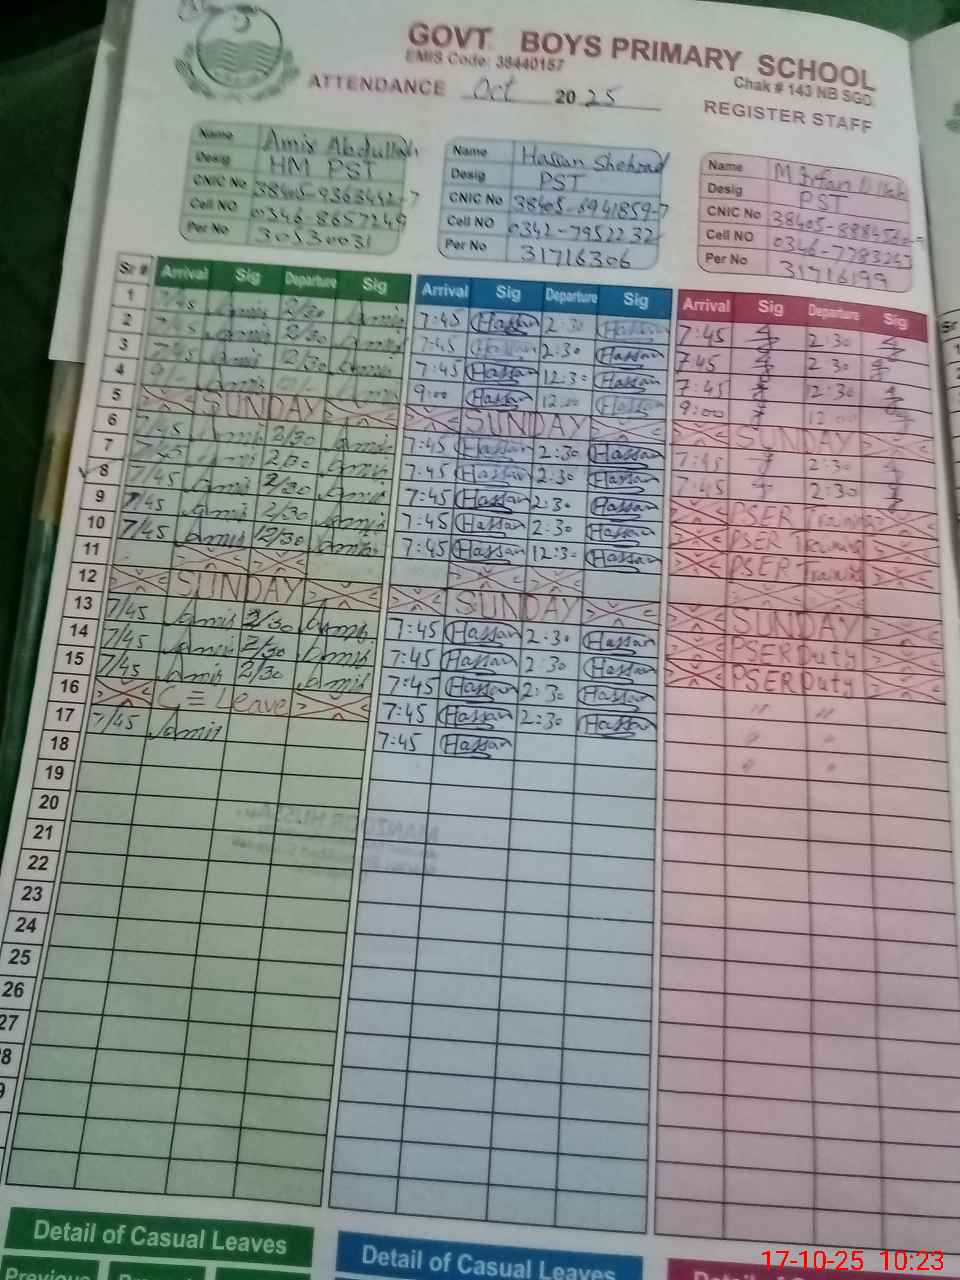 GOVT. BOYS PRIMARY SCHOOL
EMIS Code: 38440157
Chak # 143 NB SGD
ATTENDANCE Oct 2025
REGISTER STAFF
Name Amir Abdullah
Desig HM PST
CNIC No 38405-9363442-7
Cell NO 0346-8657249
Per No 30530031
Name Hassan Shehzad
Desig PST
CNIC No 38405-6941859-7
Cell NO 0342-7952232
Per No 31716306
Name M Irfan
Desig PST
CNIC No
Cell NO
Per No 31716199
Sr # Arrival Sig Departure Sig Arrival Sig Departure Sig Arrival Sig Departure Sig
1 7/45 Amir 2/30 Amir 7:45 Hassan 2:30 Hassan 7:45 2:30
2 7/45 Amir 2/30 Amir 7:45 Hassan 2:30 Hassan 7:45 2:30
3 7/45 Amir 12/30 Amir 7:45 Hassan 12:30 Hassan 7:45 12:30
4 9/- Amir 12/- Amir 9:00 Hassan 12:00 Hassan 9:00 12:00
5 SUNDAY SUNDAY SUNDAY
6 7/45 Amir 2/30 Amir 7:45 Hassan 2:30 Hassan 7:45 2:30
7 7/45 Amir 2/30 Amir 7:45 Hassan 2:30 Hassan 7:45 2:30
8 7/45 Amir 2/30 Amir 7:45 Hassan 2:30 Hassan PSER Training
9 7/45 Amir 2/30 Amir 7:45 Hassan 2:30 Hassan PSER Training
10 7/45 Amir 12/30 Amir 7:45 Hassan 12:30 Hassan PSER Training
11
12 SUNDAY SUNDAY SUNDAY
13 7/45 Amir 2/30 Amir 7:45 Hassan 2:30 Hassan PSER Duty
14 7/45 Amir 2/30 Amir 7:45 Hassan 2:30 Hassan PSER Duty
15 7/45 Amir 2/30 Amir 7:45 Hassan 2:30 Hassan " "
16 C = Leave 7:45 Hassan 2:30 Hassan " "
17 7/45 Amir 7:45 Hassan " "
18
19
20
21
22
23
24
25
26
27
Detail of Casual Leaves
Detail of Casual Leaves
Previous
17-10-25 10:23